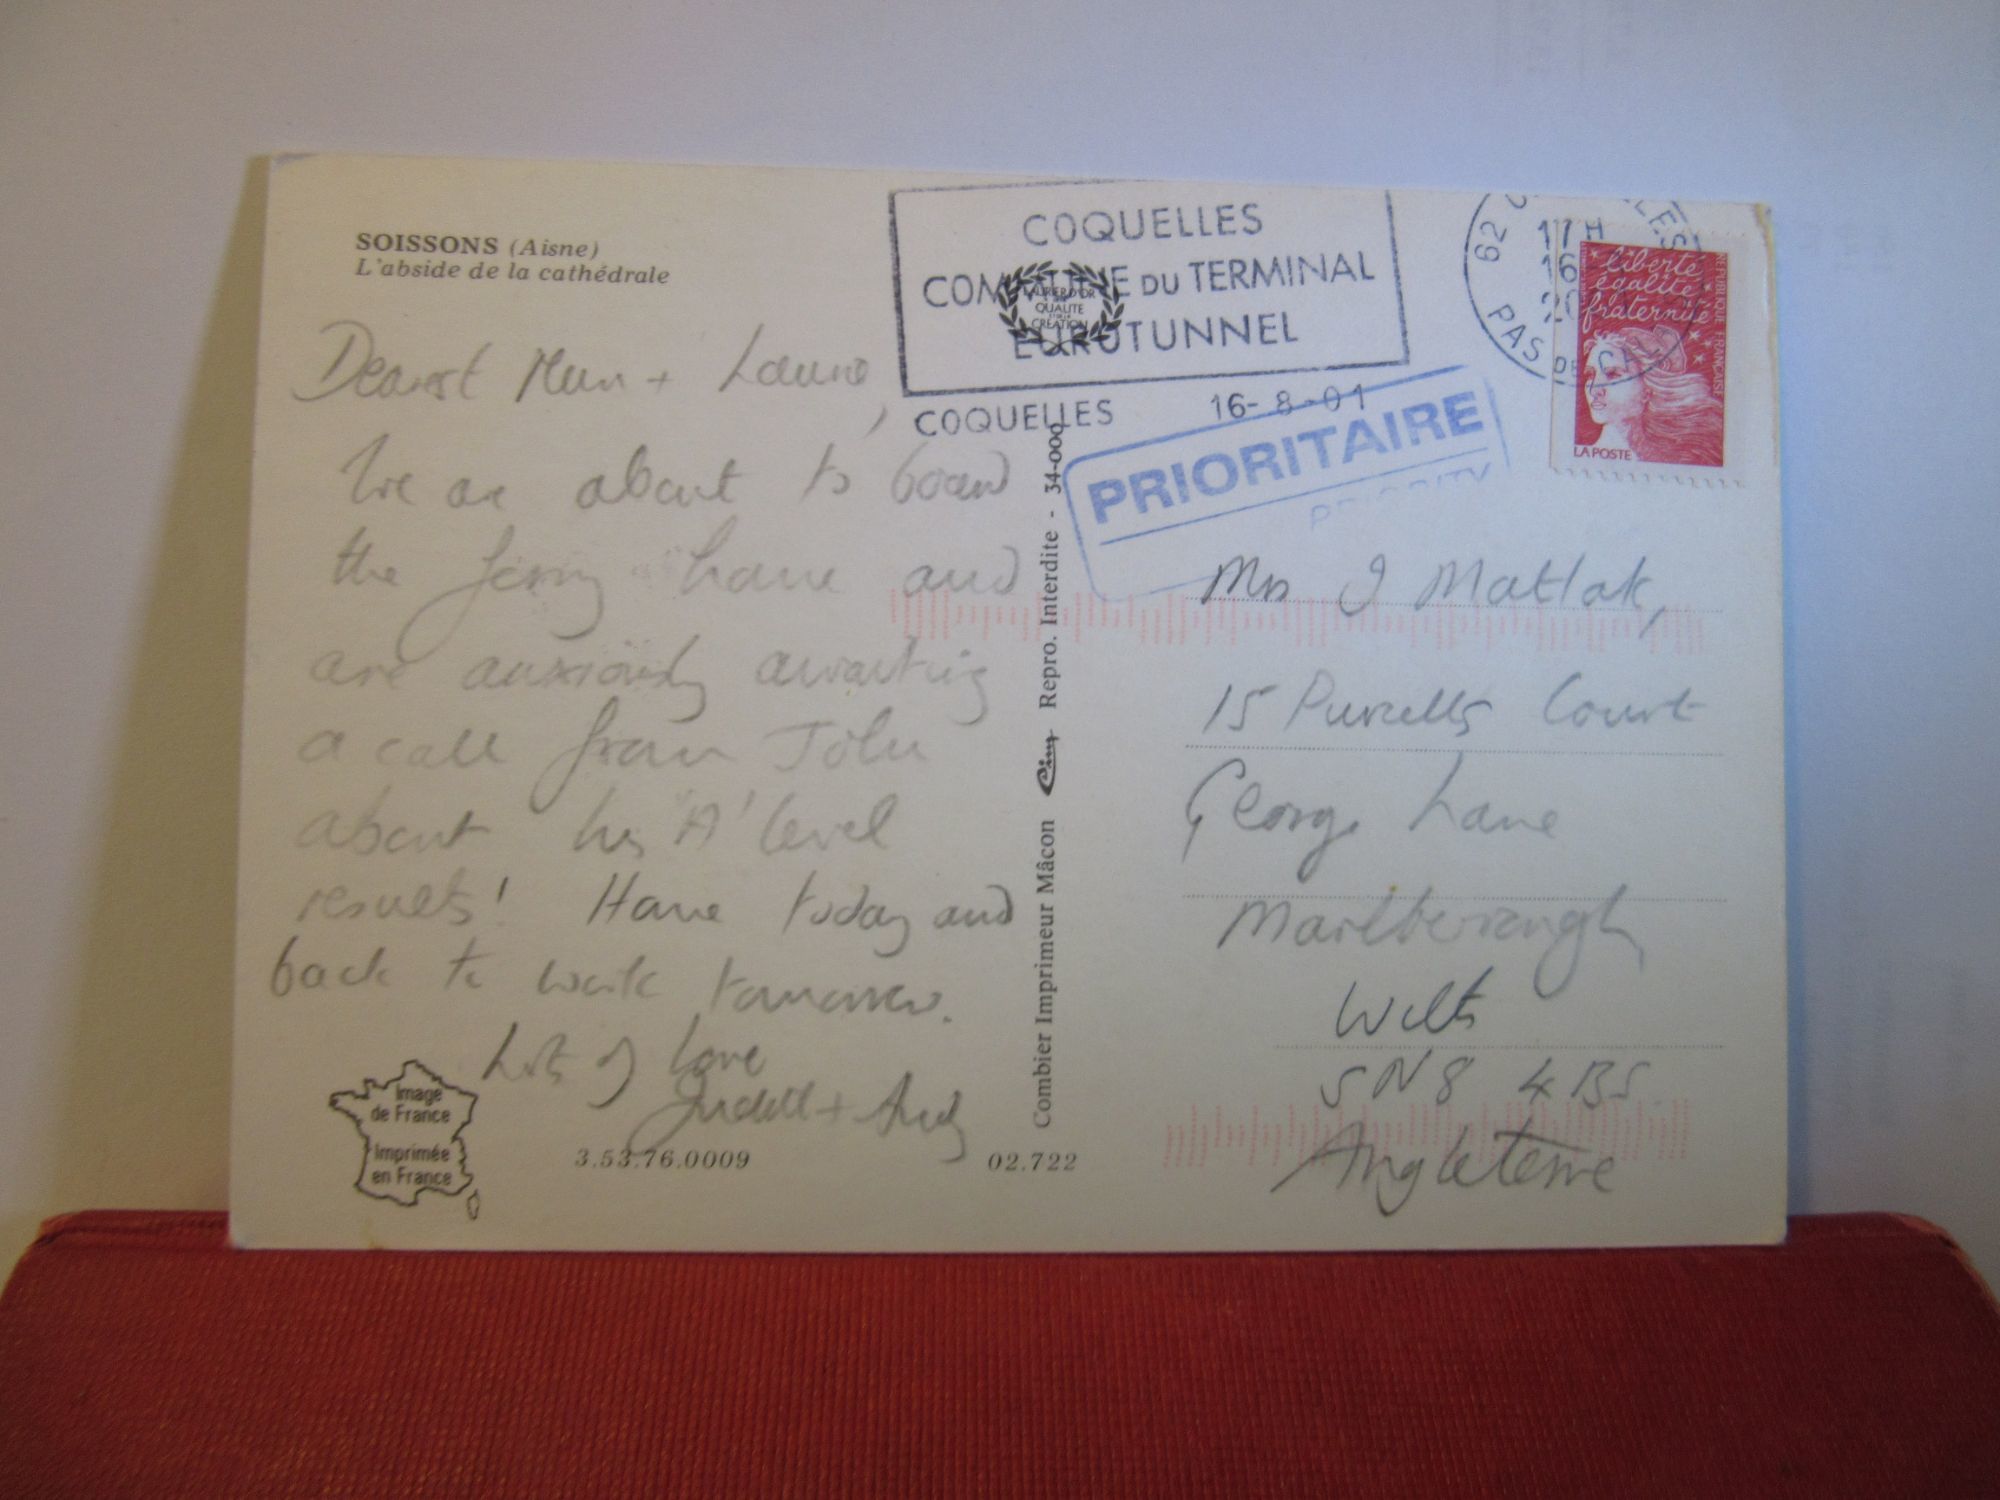 SOISSONS (Aisne)
L'abside de la cathédrale
Dearest Mum + Laurie,
We are about to board
the ferry home and
are anxiously awaiting
a call from John
about his 'A' level
results! Home today and
back to work tomorrow.
Lots of love
Judith + Andy
Image
de France
Imprimée
en France
3.53.76.0009
02.722
Combier Imprimeur Mâcon Cim Repro. Interdite - 34-000
LAURIER D'OR
QUALITE
ET DE LA
CREATION
COQUELLES
COMMUNE DU TERMINAL
EUROTUNNEL
COQUELLES 16-8-01
PRIORITAIRE
PRIORITY
62
17H
16
20
PAS DE CALAIS
liberté
égalité
fraternité
REPUBLIQUE FRANÇAISE
LA POSTE
Mrs J Matlak,
15 Purcells Court
George Lane
Marlborough
Wilts
SN8 4BS
Angleterre